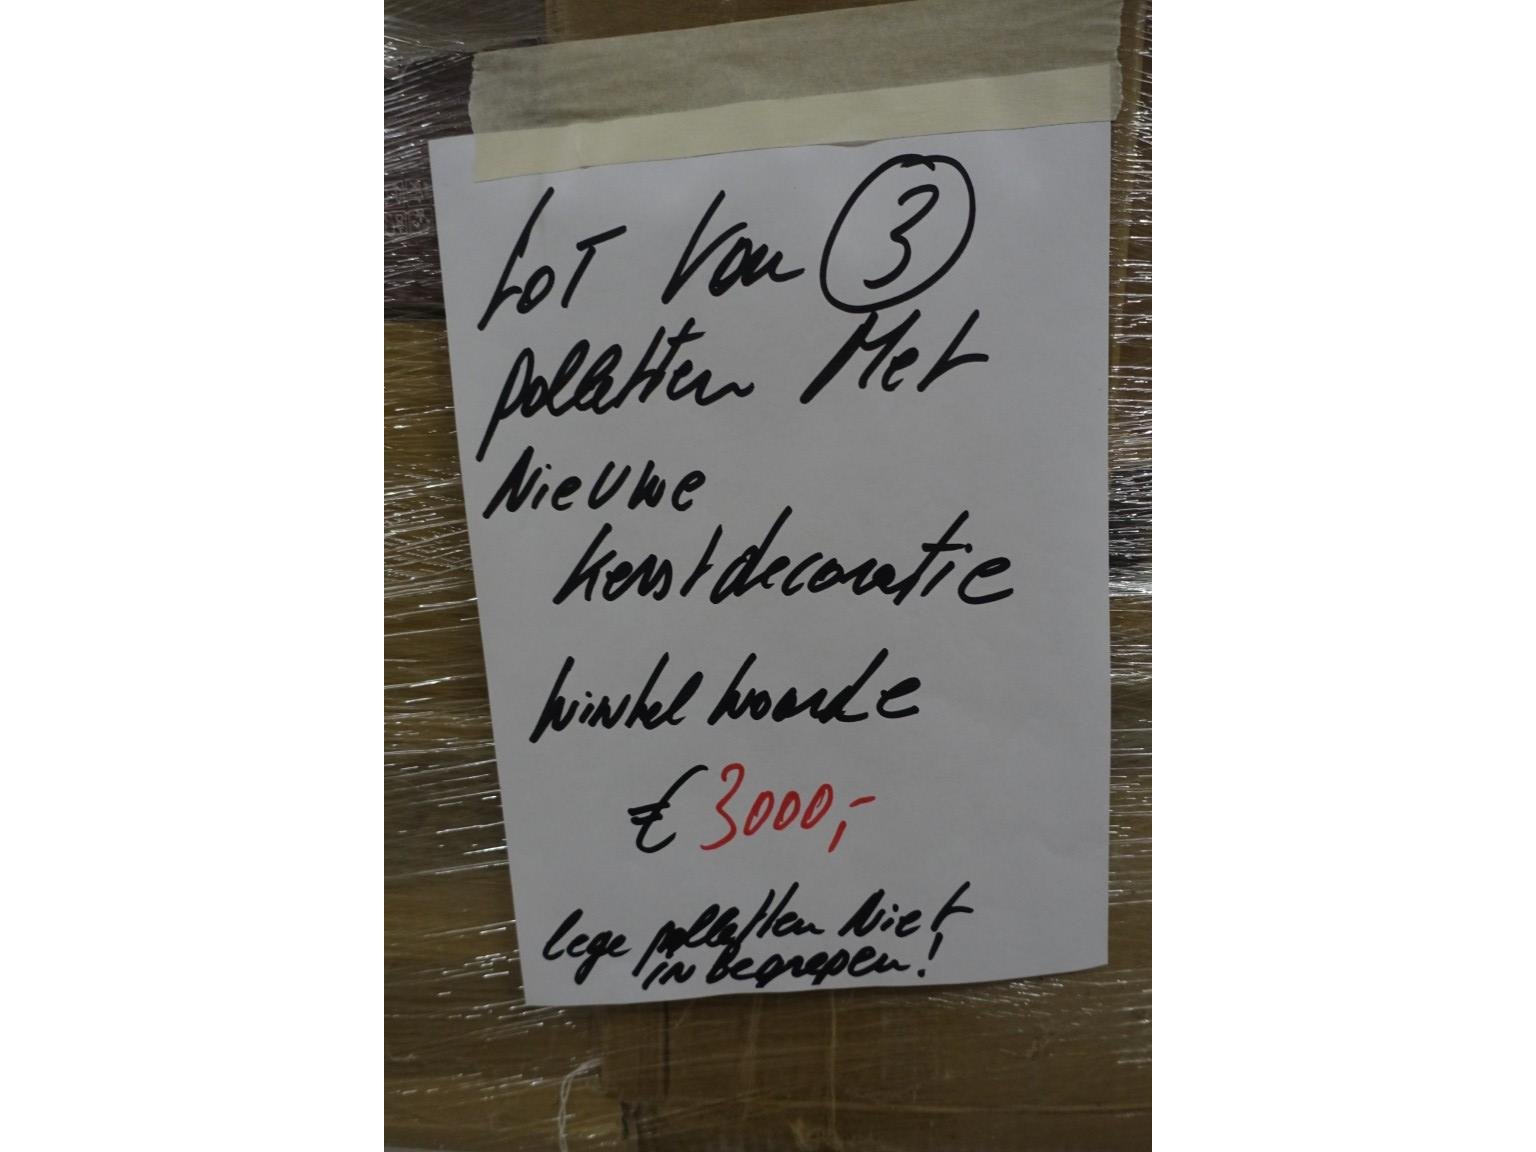 LOT Van 3
palletten Met
Nieuwe
kerstdecoratie
winkel waarde
€ 3000,-
lege palletten Niet
in Begrepen!